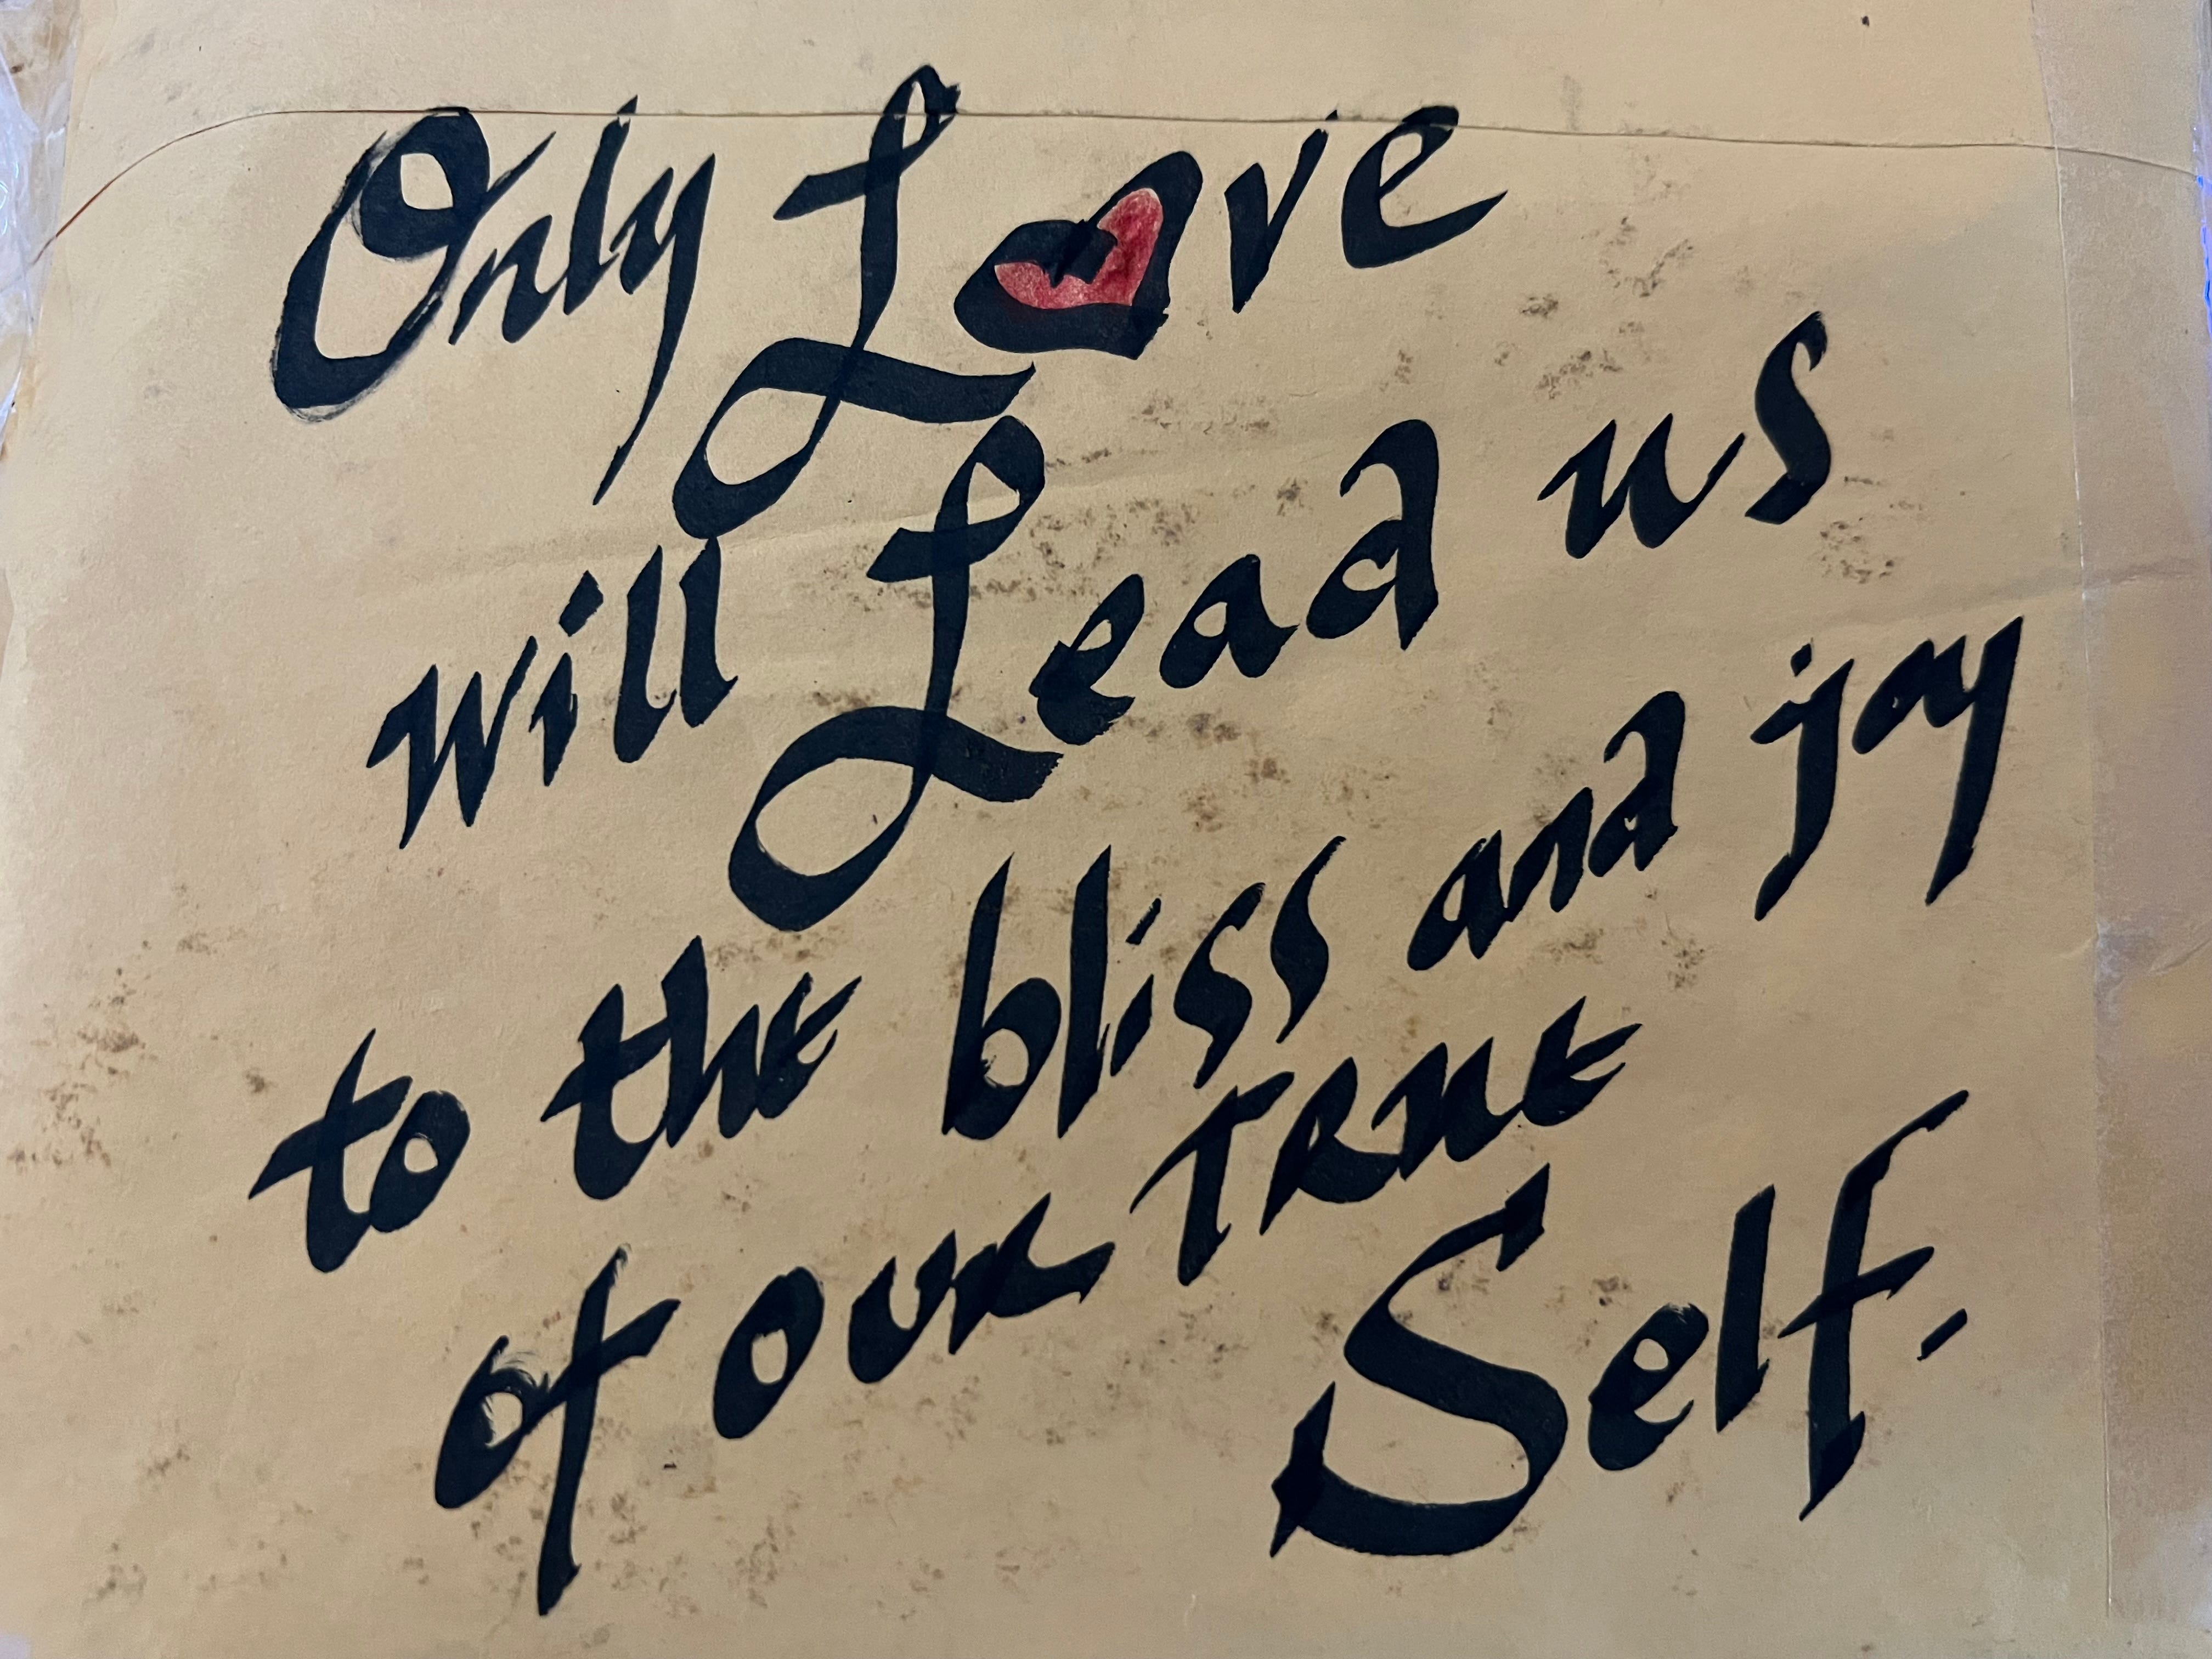 Only Love
will Lead us
to the bliss and joy
of OUR TRUE
Self.